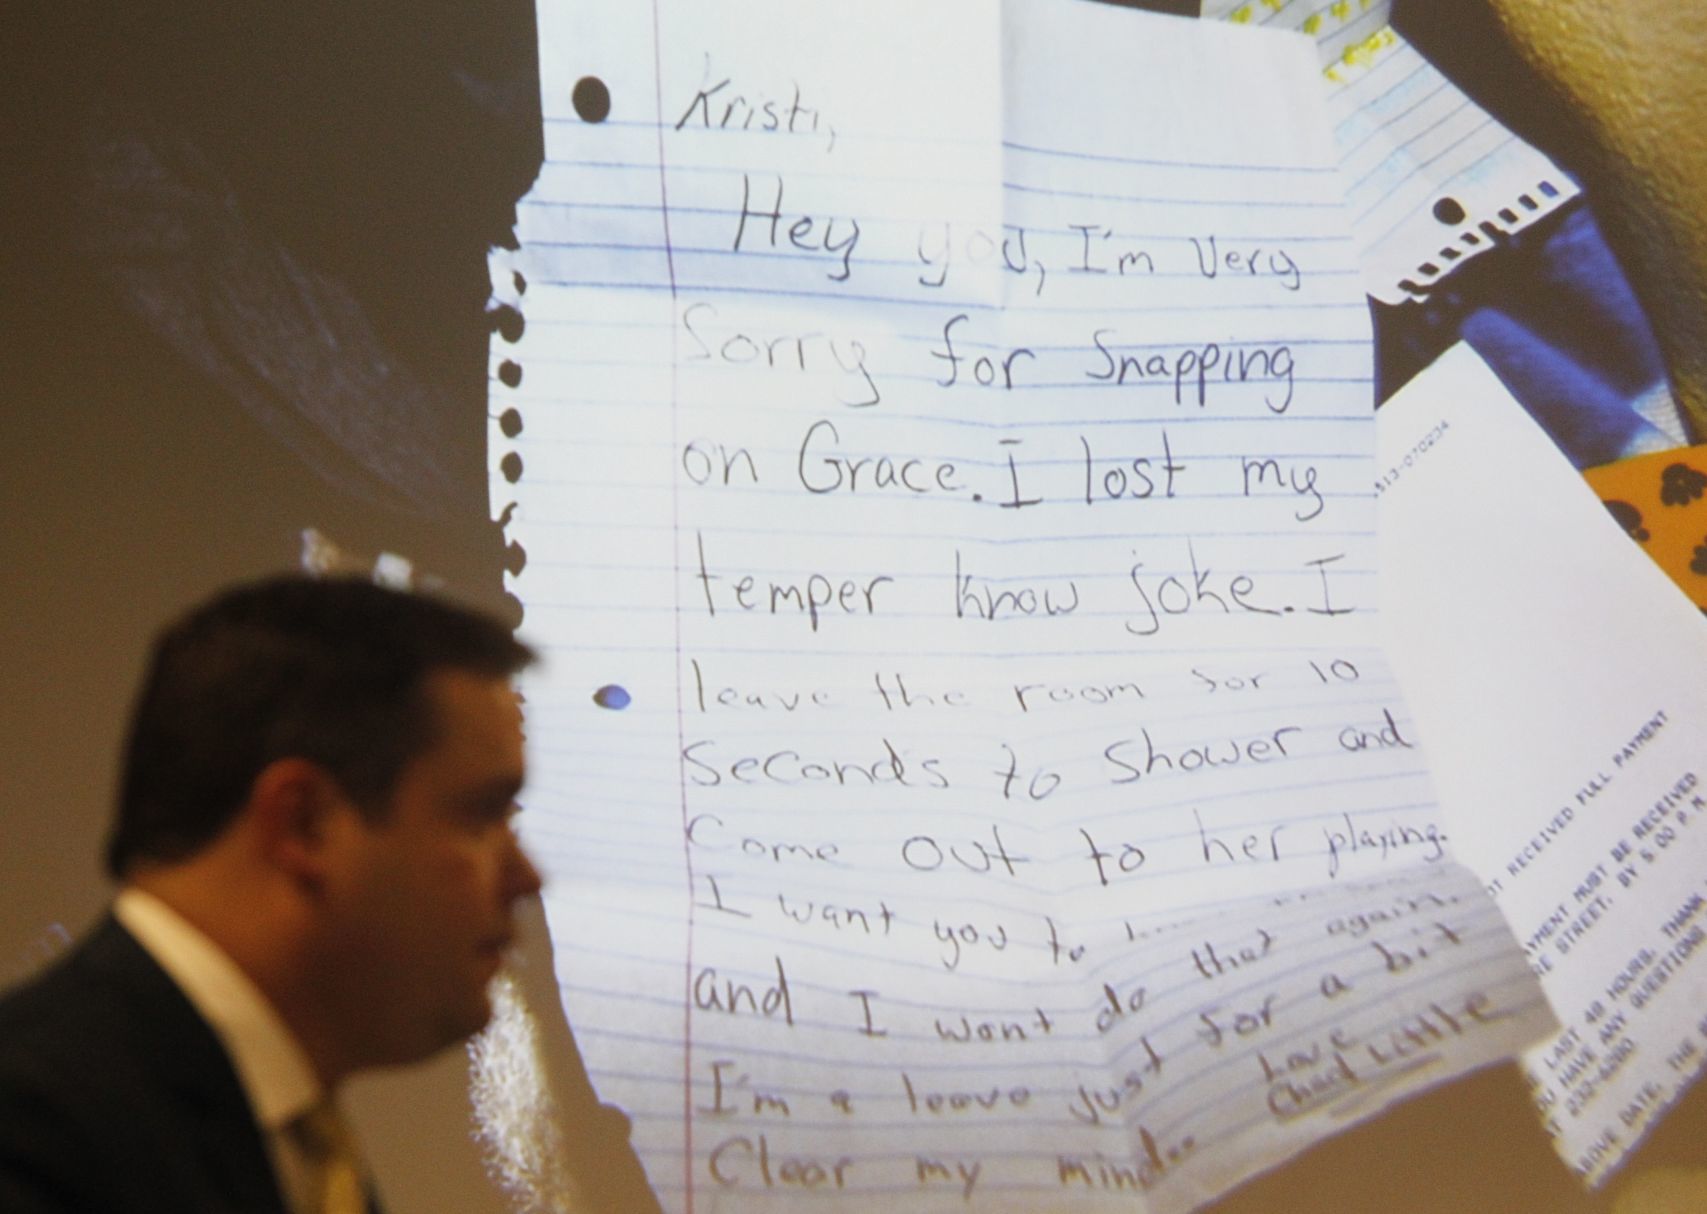 Kristi,
Hey you, I'm Very
Sorry for Snapping
on Grace. I lost my
temper know joke. I
leave the room for 10
Seconds to Shower and
Come out to her playing.
I want you to
and I wont do that again.
I'm a leave just for a bit
Clear my mind..
Love
Chad Little
513-070234
RECEIVED FULL PAYMENT
MUST BE RECEIVED
STREET, BY 5:00 P.M.
LAST 48 HOURS, THANK
HAVE ANY QUESTIONS
232-6280
DATE, THE